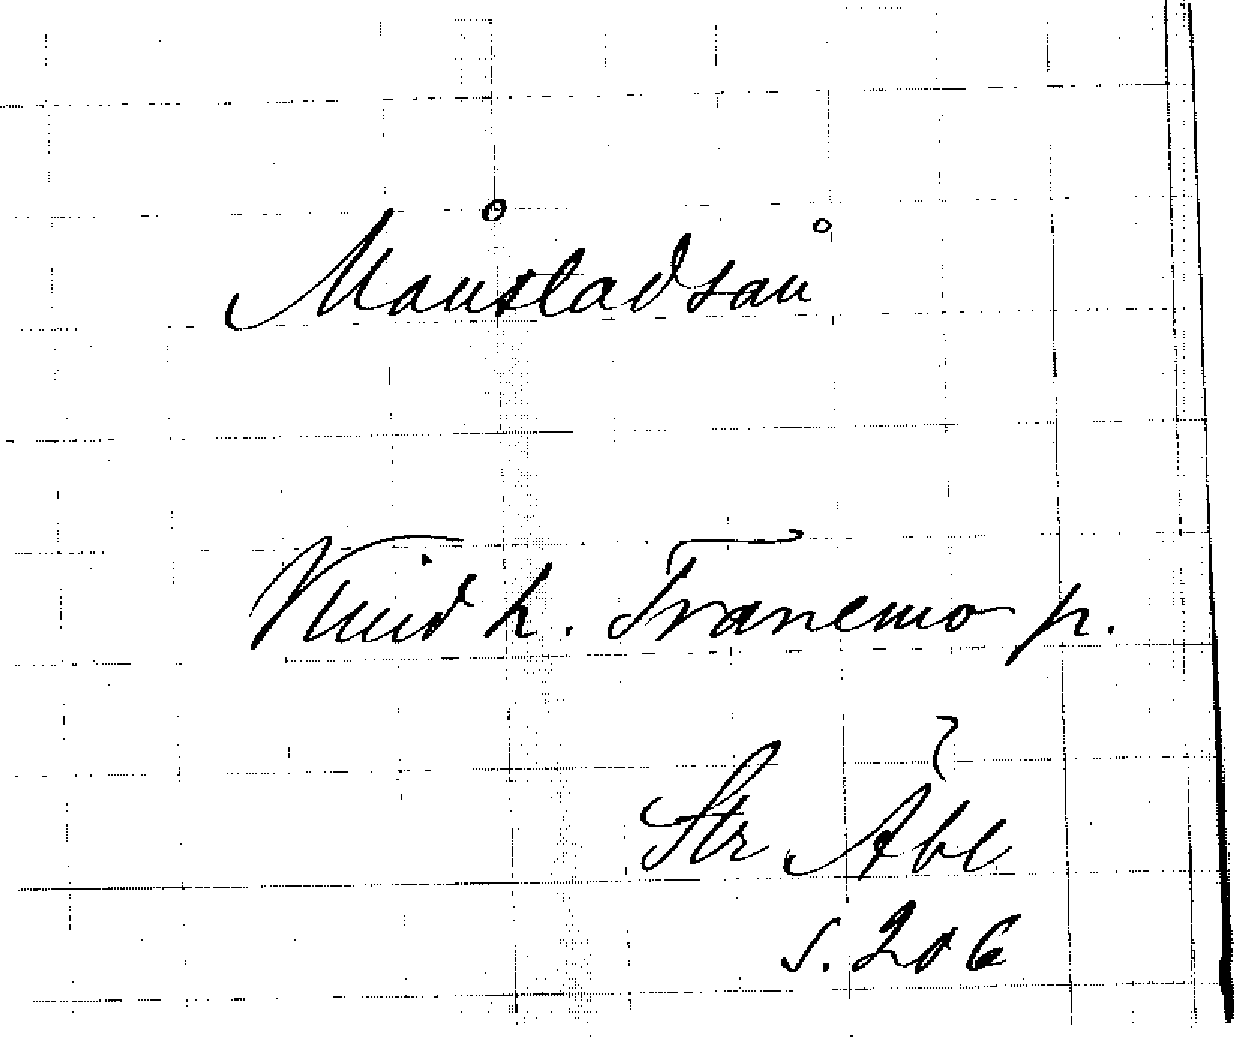 Månstadsån
Kind h. Tranemo p.
Str Åbl
s. 206